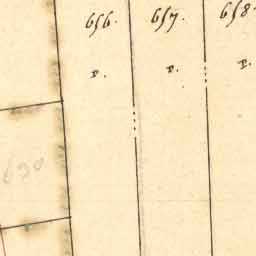 656. 657. 658.
P. P. P.
630